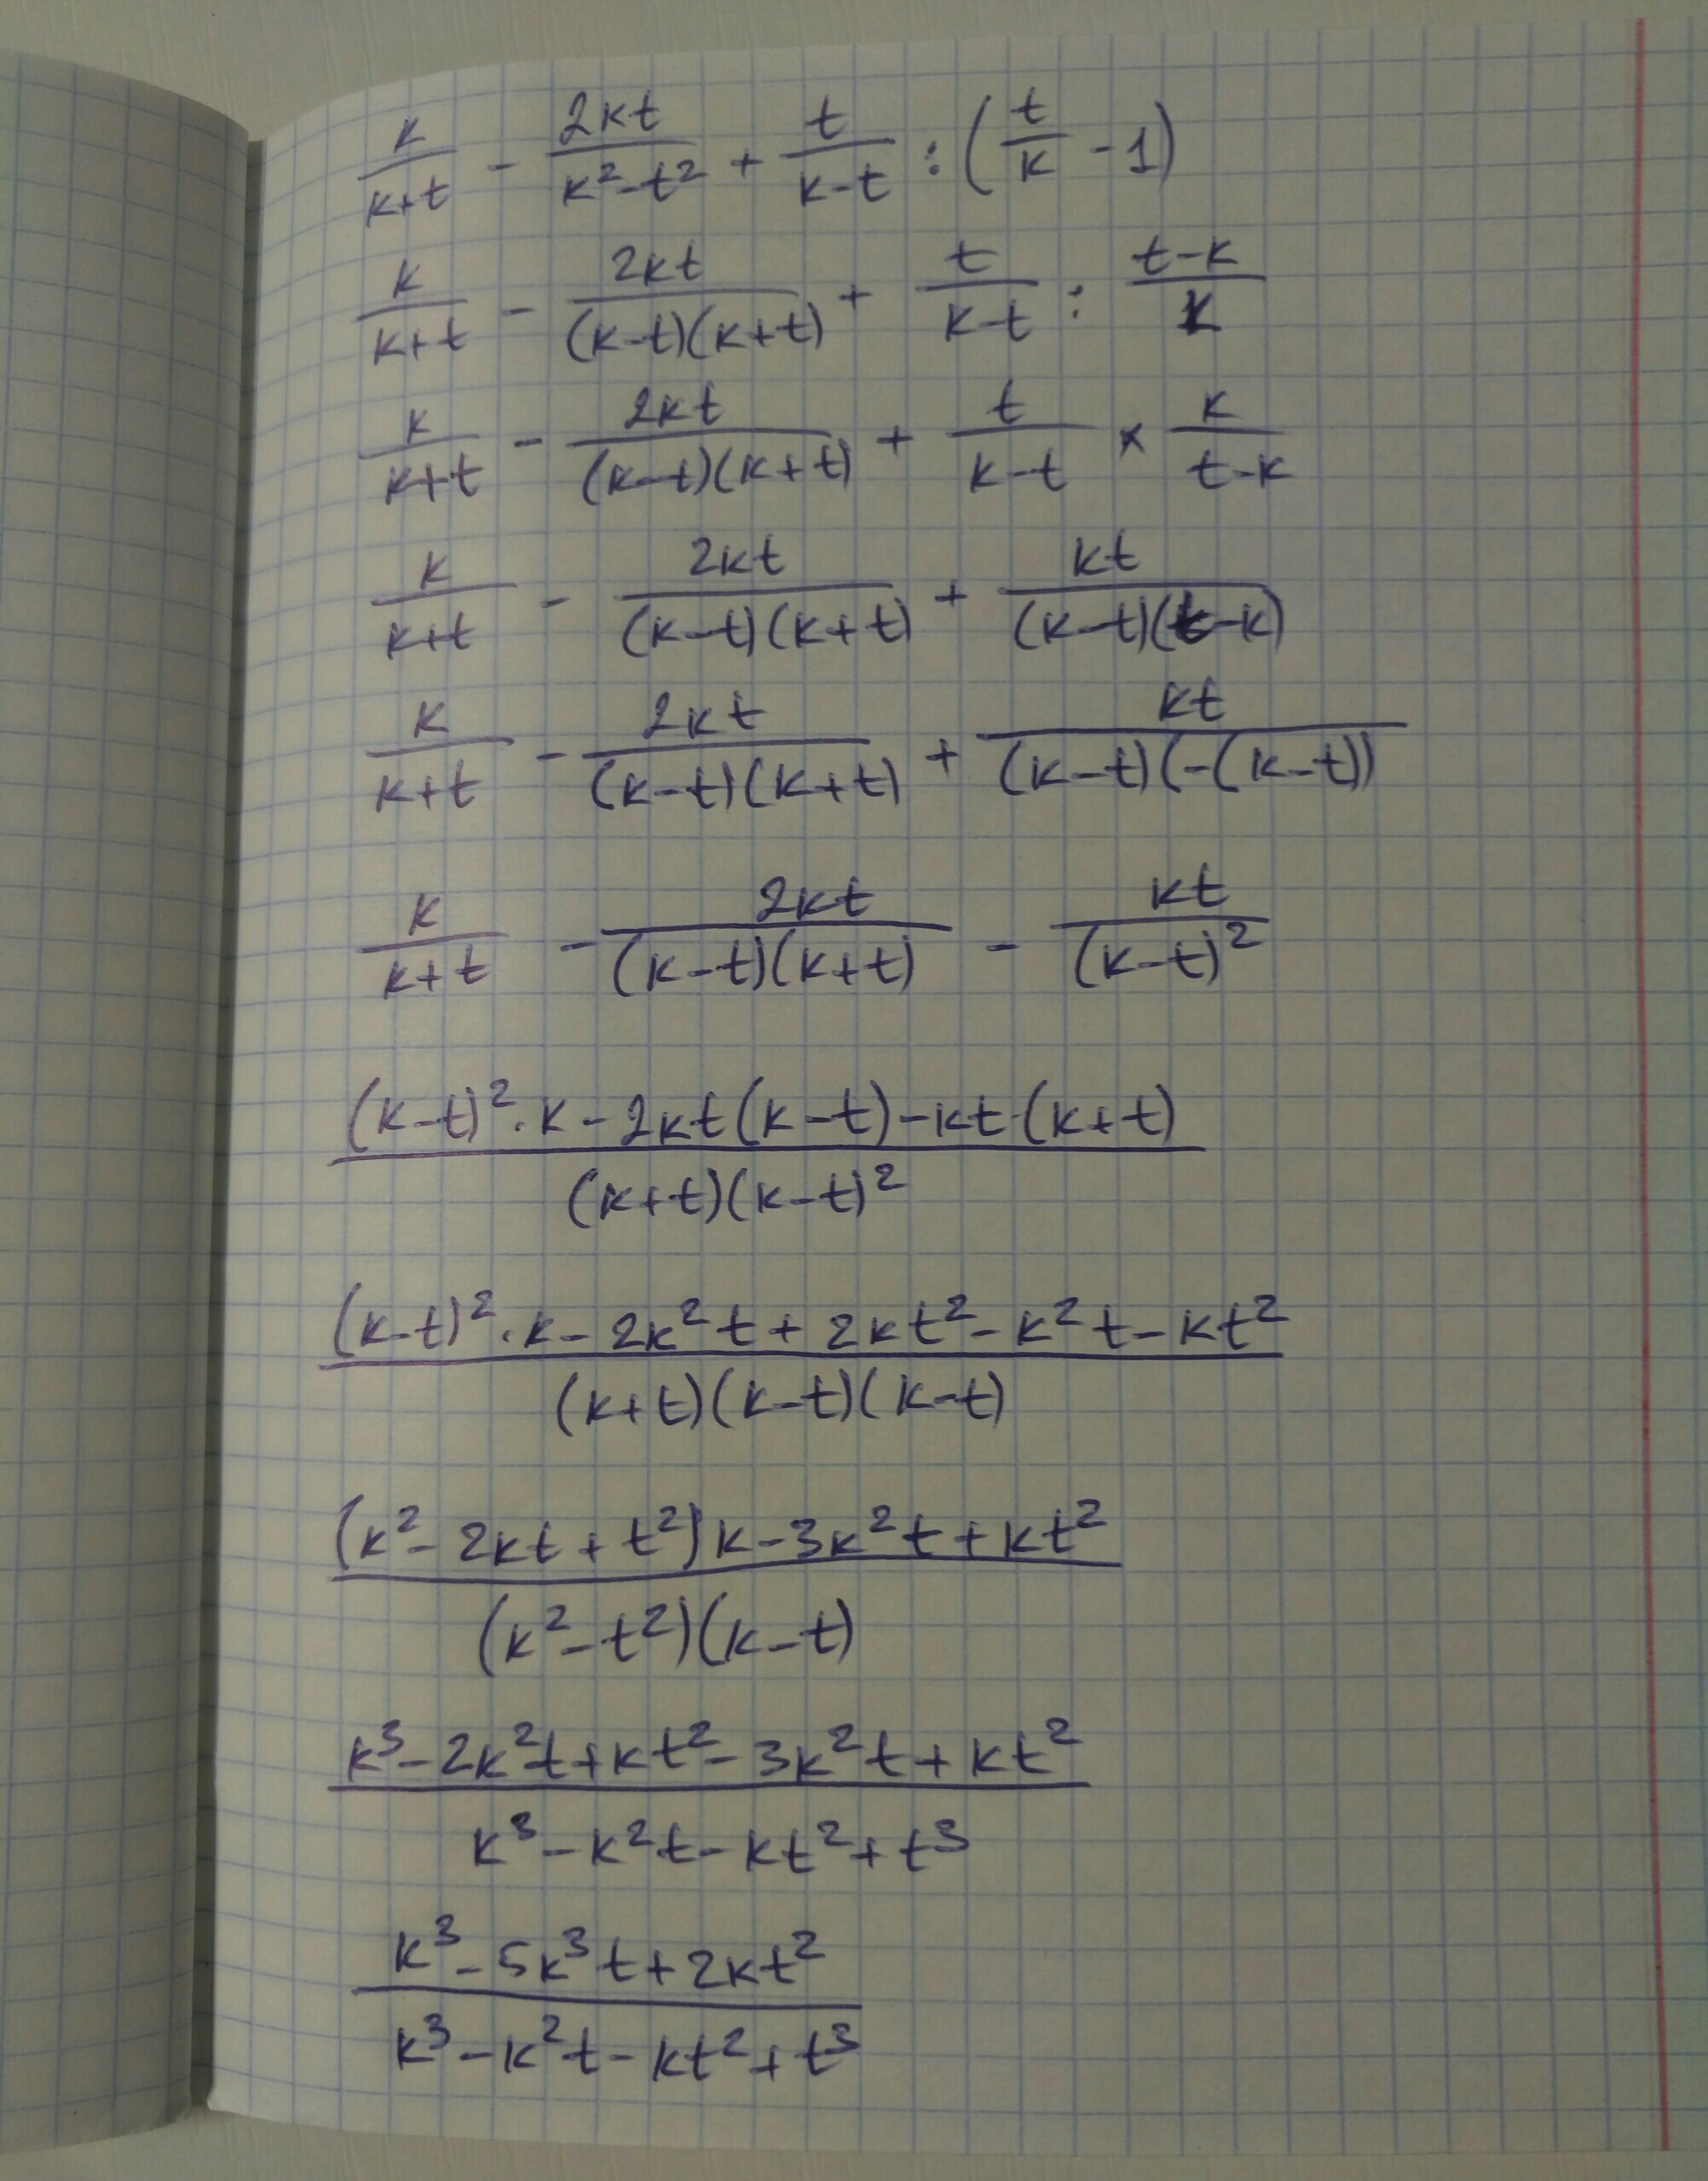 k/(k+t) - 2kt/(k²-t²) + t/(k-t) : (t/k - 1)
k/(k+t) - 2kt/((k-t)(k+t)) + t/(k-t) : (t-k)/k
k/(k+t) - 2kt/((k-t)(k+t)) + t/(k-t) × k/(t-k)
k/(k+t) - 2kt/((k-t)(k+t)) + kt/((k-t)(t-k))
k/(k+t) - 2kt/((k-t)(k+t)) + kt/((k-t)(-(k-t))
k/(k+t) - 2kt/((k-t)(k+t)) - kt/(k-t)²
(k-t)²·k-2kt(k-t)-kt(k+t)
(k+t)(k-t)²
(k-t)²·k-2k²t+2kt²-k²t-kt²
(k+t)(k-t)(k-t)
(k²-2kt+t²)k-3k²t+kt²
(k²-t²)(k-t)
k³-2k²t+kt²-3k²t+kt²
k³-k²t-kt²+t³
k³-5k³t+2kt²
k³-k²t-kt²+t³